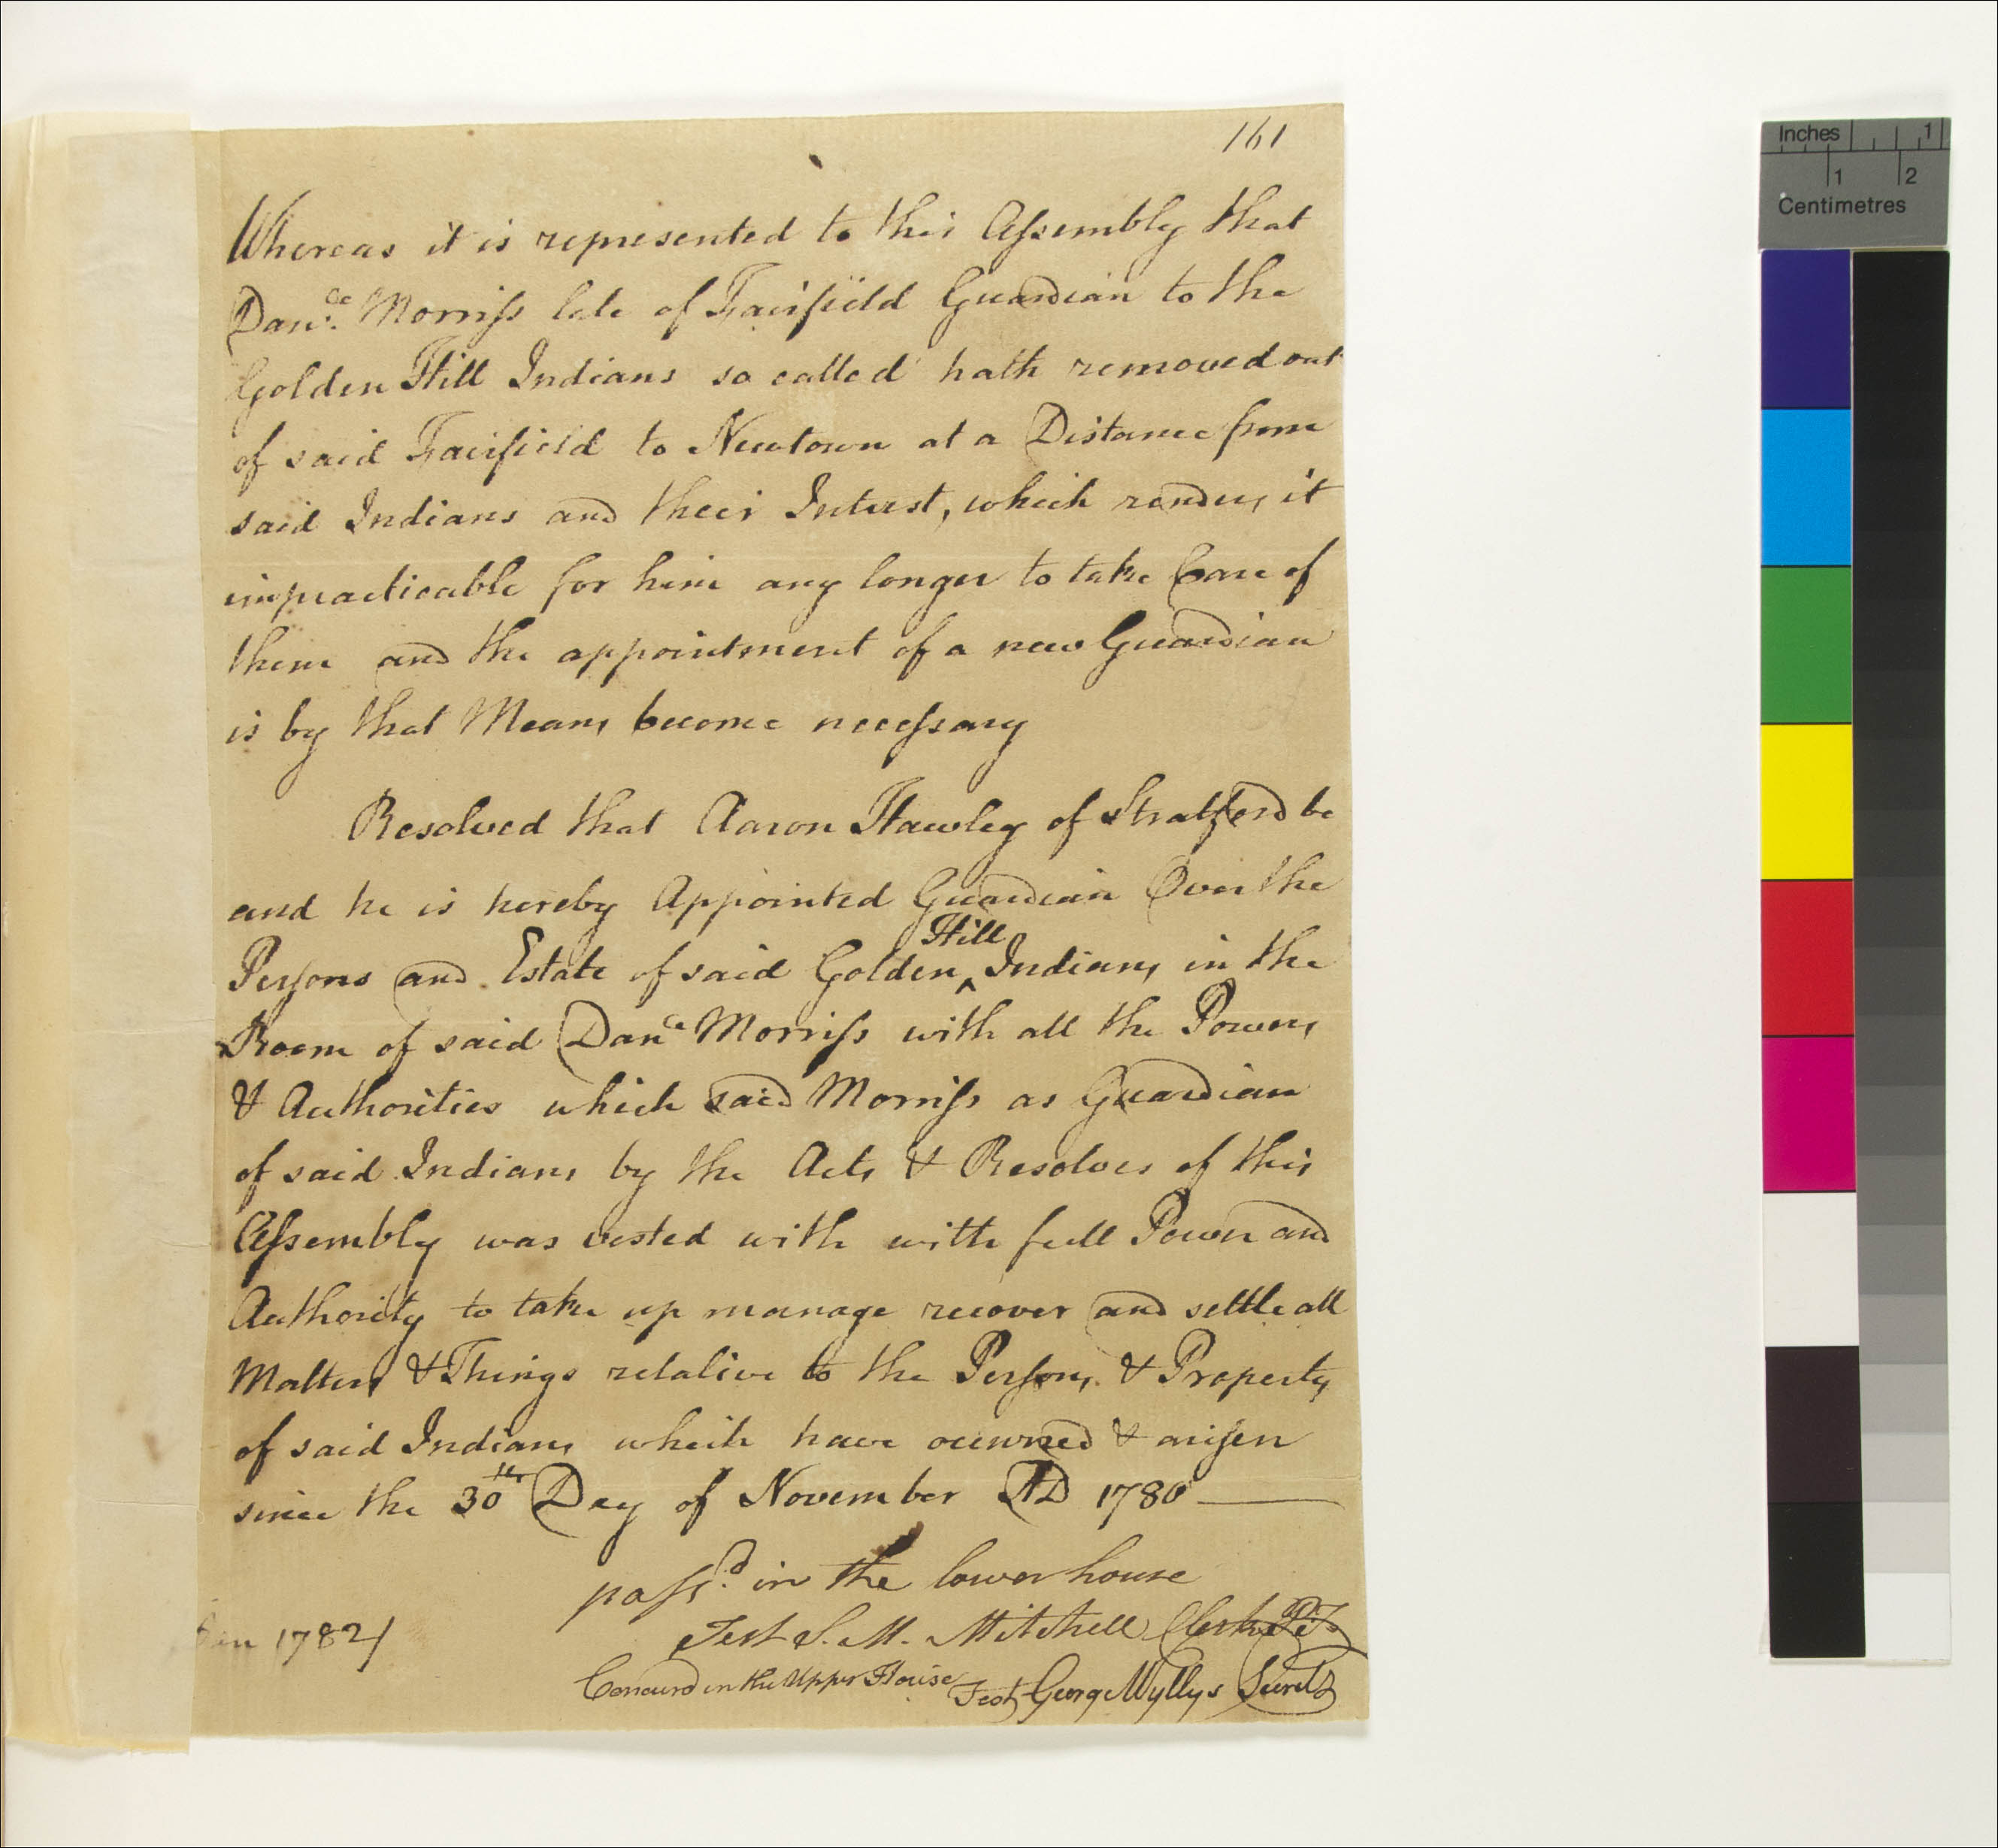 161
Whereas it is represented to this Assembly that
Danˡˡ Morriss late of Fairfield Guardian to the
Golden Hill Indians so called hath removed out
of said Fairfield to Newtown at a Distance from
said Indians and their Interest, which renders it
impracticable for him any longer to take Care of
them and the appointment of a new Guardian
is by that Means become necessary
Resolved that Aaron Hawley of Stratford be
and he is hereby Appointed Guardian Over the
Hill
Persons and Estate of said Golden ^ Indians in the
Room of said Danˡˡ Morriss with all the Powers
& Authorities which said Morriss as Guardian
of said Indians by the Acts & Resolves of this
Assembly was vested with with full Power and
Authority to take up manage recover and settle all
Matters & Things relative to the Persons & Property
of said Indians which have occurred & arisen
since the 30th Day of November AD 1780
passd in the lower house
Test S. M. Mitchell Clerk P.T.
1782
Concurd in the Upper House
Test George Wyllys Secretʸ
Inches 1
1 2
Centimetres